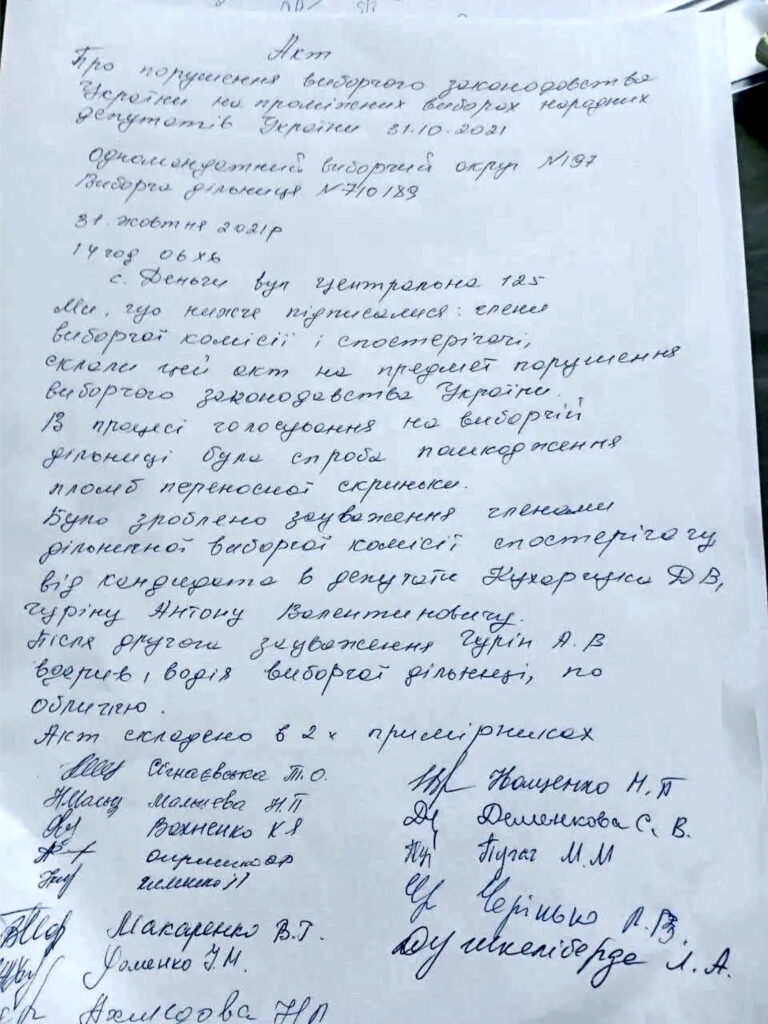 Акт
Про порушення виборчого законодавства
України на проміжних виборах народних
депутатів України 31.10.2021
Одномандатний виборчий округ №197
Виборча дільниця №710189
31 жовтня 2021р
14 год 06 хв
с. Деньги вул Центральна 125
Ми, що нижче підписалися: члени
виборчої комісії і спостерігачі,
склали цей акт на предмет порушення
виборчого законодавства України.
В процесі голосування на виборчій
дільниці була спроба пошкодження
пломб переносної скриньки.
Було зроблено зауваження членами
дільничної виборчої комісії спостерігачу
від кандидата в депутати Кухарчука Д В,
Гуріну Антону Валентиновичу.
Після другого зауваження Гурін А. В
вдарив, водія виборчої дільниці, по
обличчю.
Акт складено в 2х примірниках
Сігнаєвська Т. О. Кощенко Н. П
Мальцева Н. П Деменкова С. В.
Вахненко К Я Пугач М. М
Черінько Л. В.
Макаренко В. Г. Шкеліберда Л. А.
Фоменко Г. М.
Ахмедова Н П